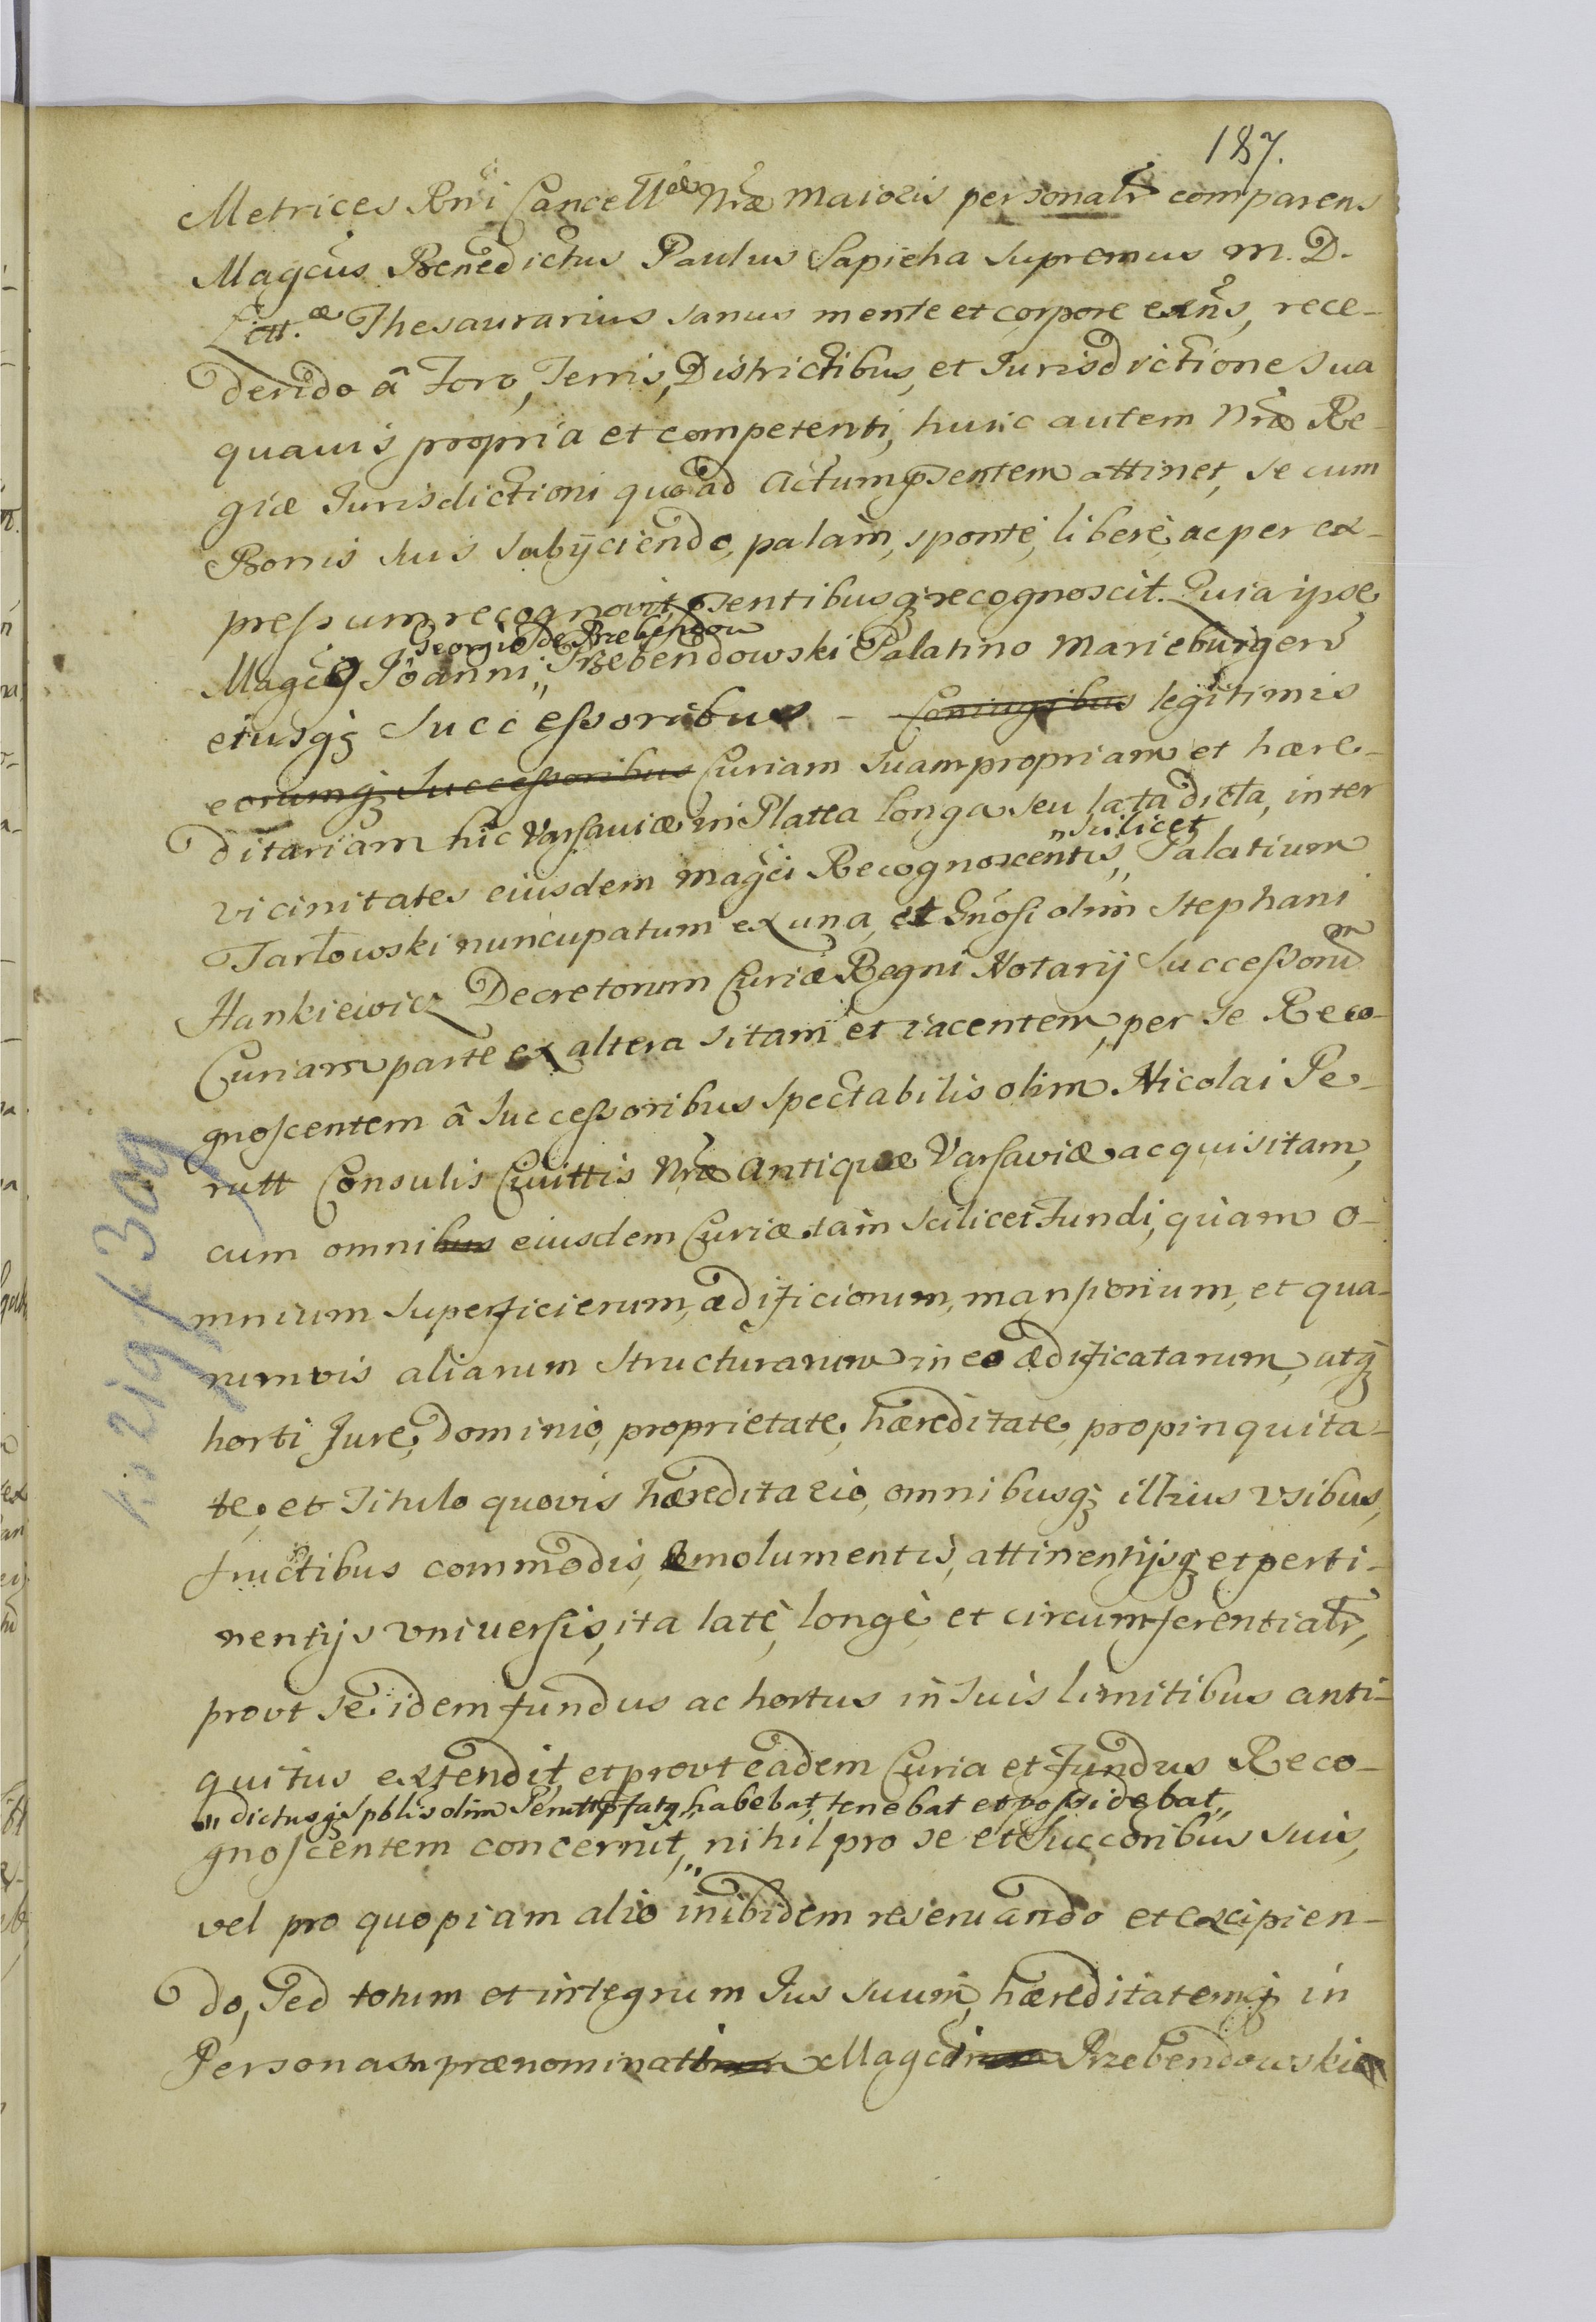 187.
Metrices Rni Cancellae Nrae Maioris personalr comparens
Magcus Benedictus Paulus Sapieha Supremus M. D.
Litt.ae Thesaurarius sanus mente et corpore exñs, rece-
dendo â Foro, Terris, Districtibus, et Jurisdictione sua
quauis propria et competenti, huic autem Nrae Re-
giae Jurisdictioni quoad actum psentem attinet, se cum
Bonis suis subÿciendo, palàm, spontè, liberè, ac per ex-
pressum recognovit, psentibusq recognoscit. Quia ipse
Georgio de Przebendow
Magco Joanni,, Przebendowski Palatino Marieburgen
eiusq Successoribus - Coniugibus legitimis
eorumq Successoribus Curiam suam propriam et haere-
ditariam hic Varsaviae in Platea longa seu lata dicta, inter
" scilicet
vicinitates eiusdem Magci Recognoscentis,, Palatium
Tarłowski nuncupatum ex una, et Gnosi olim Stephani
Hankiewicz Decretorum Curiae Regni Notarij Successorum
Curiam parte ex altera sitam et iacentem, per se Reco-
gnoscentem â Successoribus Spectabilis olim Nicolai Pe-
rutt Consulis Civittis Nrae Antiquae Varsaviae acquisitam,
cum omnibus eiusdem Curiae tàm scilicet Fundi, quàm o-
mnium superficierum, aedificiorum, mansionum, et qua-
rumvis aliarum Structurarum in eo aedificatarum, atq
horti Jure, dominio, proprietate, haereditate, propinquita-
te, et Titulo quovis haereditario, omnibusq illius vsibus,
fructibus commodis, emolumentis, attinentijsq et perti-
nentijs vniversis, ita latè, longè, et circumferentialr,
provt se idem fundus ac hortus in suis limitibus anti-
quitus extendit, et provt eadem Curia et Fundus Reco-
" dictusq Spblis olim Perutt pfatq habebat, tenebat et possidebat,,
gnoscentem concernit,,, nihil pro se et Succoribus suis,
vel pro quopiam alio inibidem reservando et excipien-
do, Sed totum et integrum Jus suum, haereditatemq in
Personam praenominati Magci Przebendowski